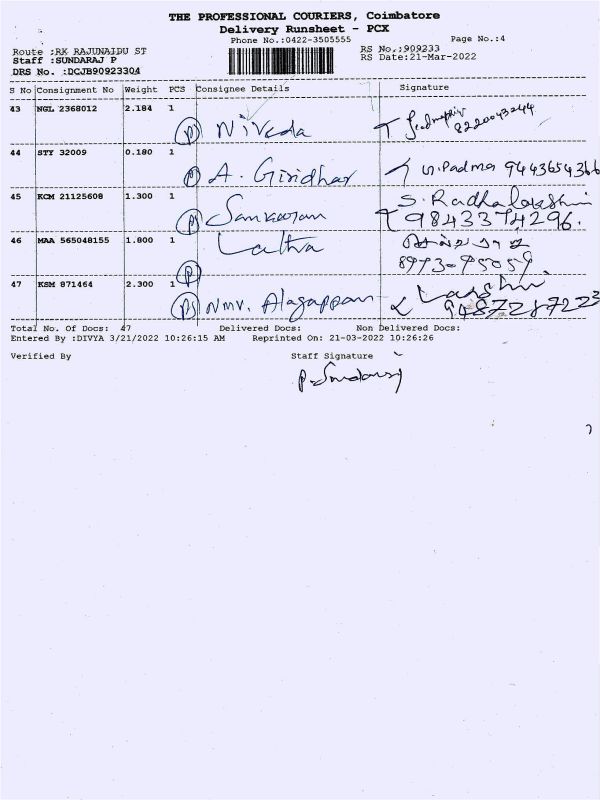 THE PROFESSIONAL COURIERS, Coimbatore
Delivery Runsheet - PCX
Phone No.:0422-3505555 Page No.:4
Route :RK RAJUNAIDU ST RS No.:909233
Staff :SUNDARAJ P RS Date:21-Mar-2022
DRS No. :DCJB90923304
S No Consignment No Weight PCS Consignee Details Signature
43 NGL 2368012 2.184 1
Niveda 8220043244
44 STY 32009 0.180 1
A. Giridhar M.Padma 9443654366
45 KCM 21125608 1.300 1 S. Radha Lakshmi
Sankaran 98433 74296.
46 MAA 565048155 1.800 1 Latha
8973095059
47 KSM 871464 2.300 1
NMV. Alagappan Lakshmi
9487287223
Total No. Of Docs: 47 Delivered Docs: Non Delivered Docs:
Entered By :DIVYA 3/21/2022 10:26:15 AM Reprinted On: 21-03-2022 10:26:26
Verified By Staff Signature